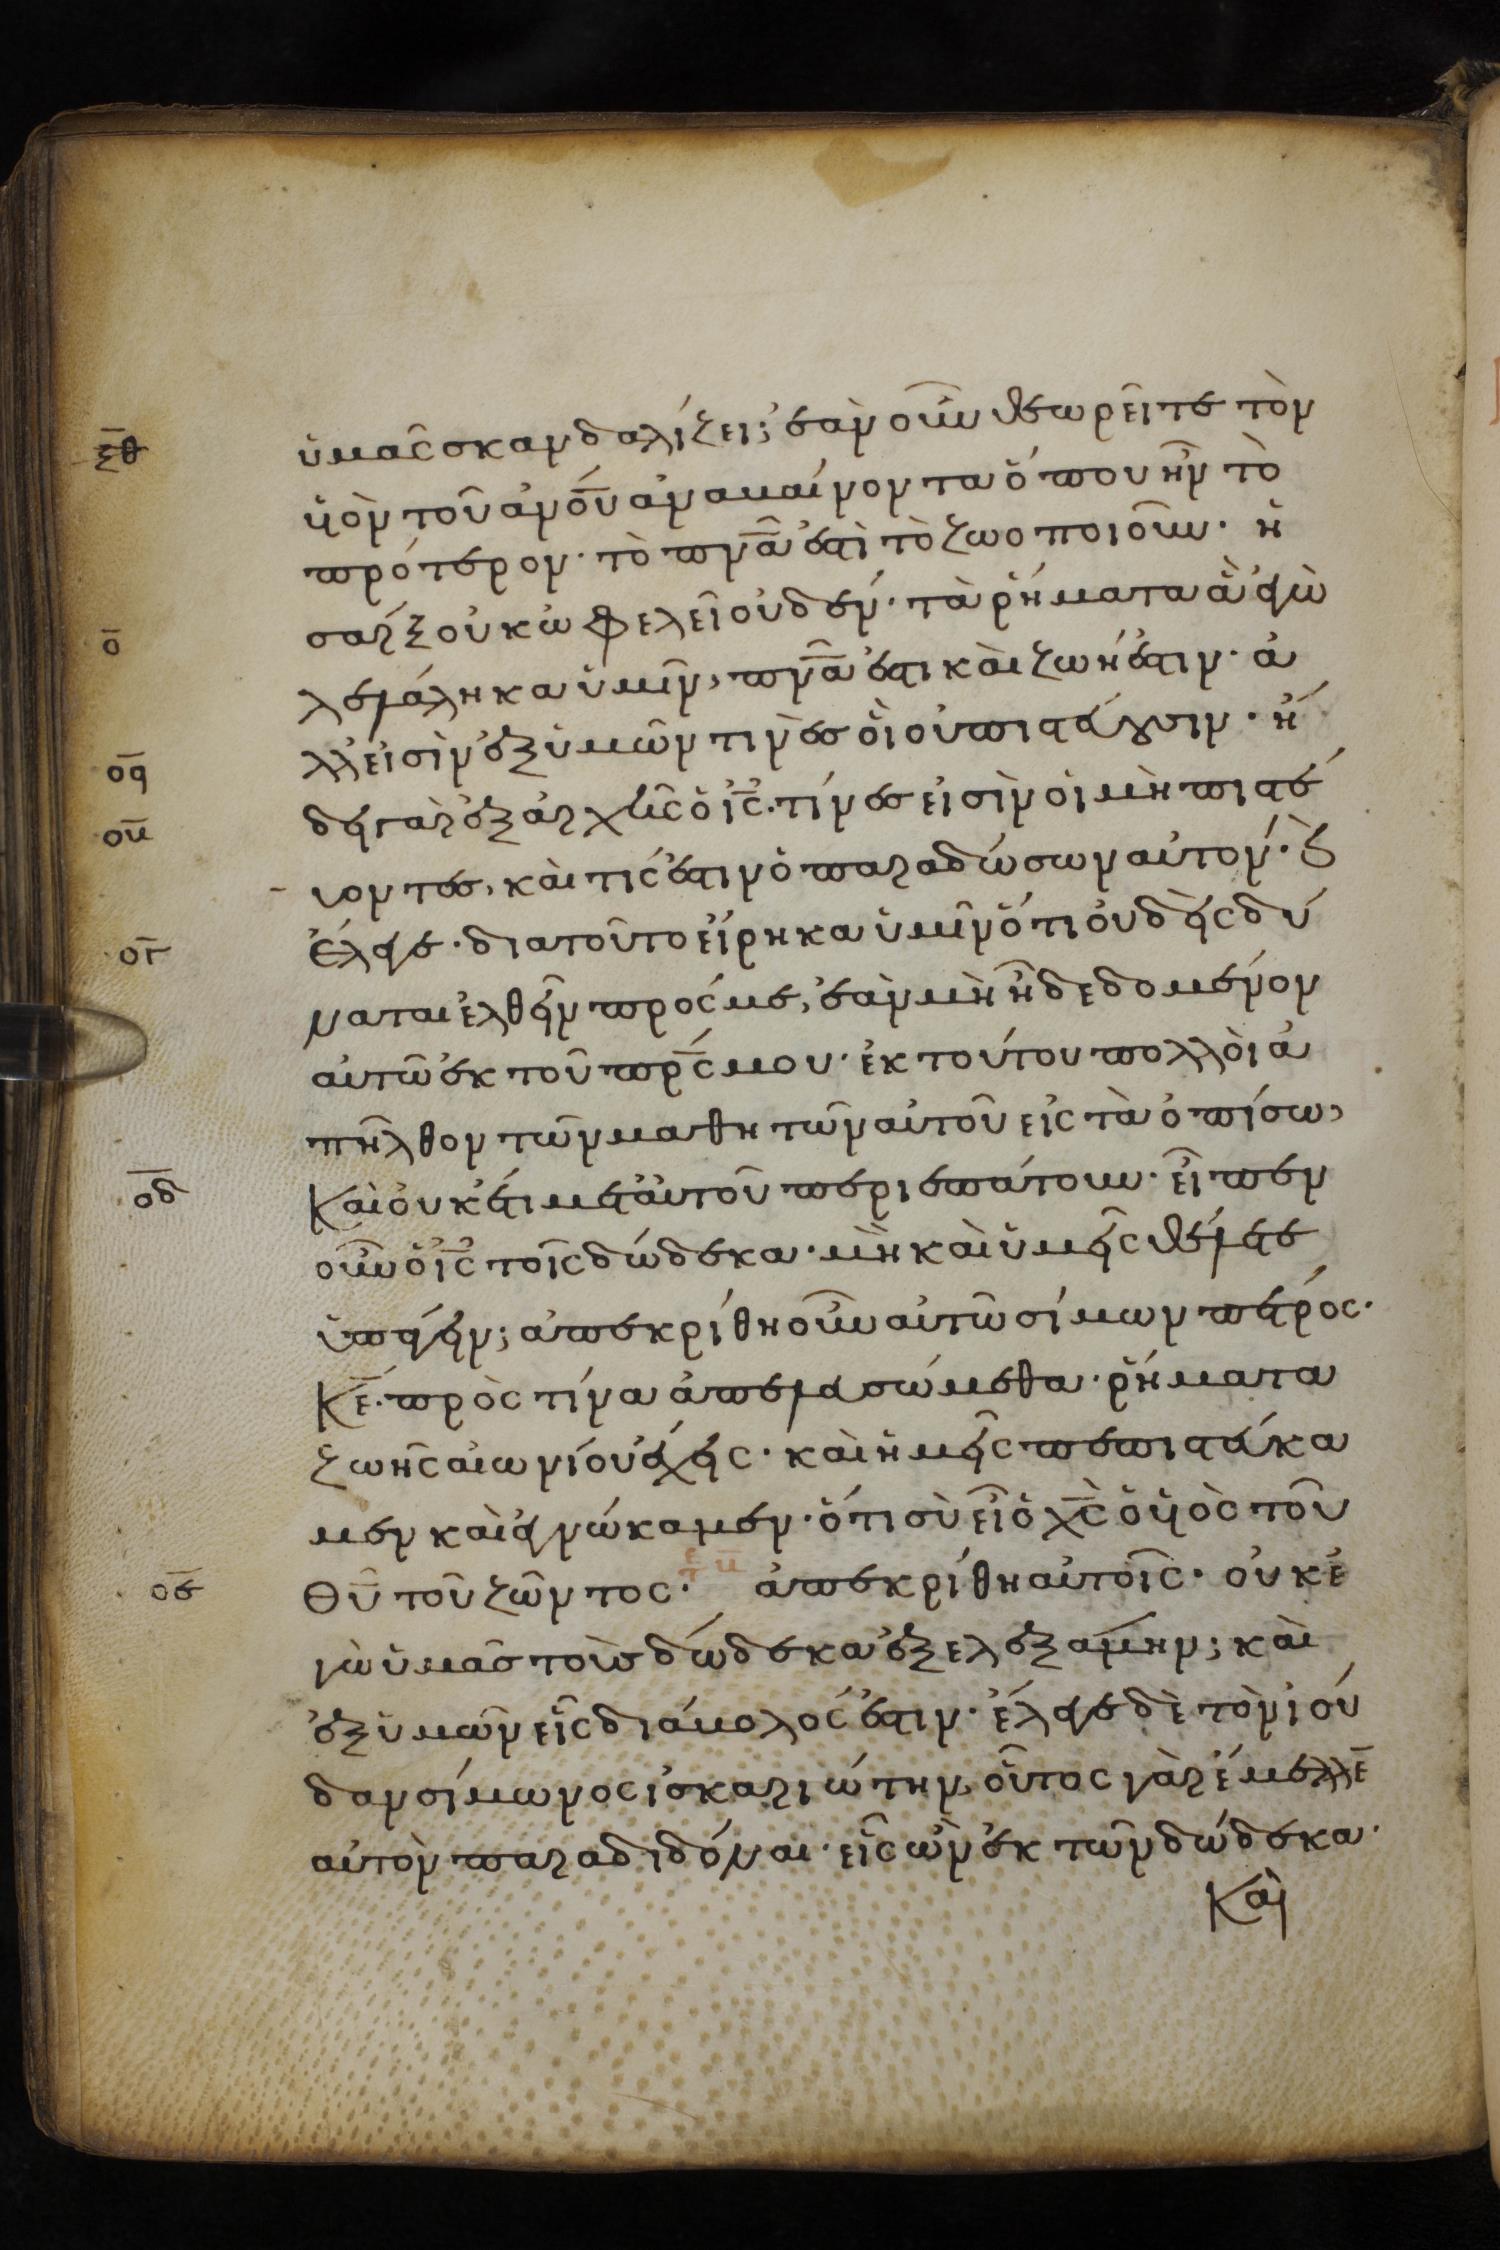 ξθ ὑμᾶς σκανδαλίζει; ἐὰν οὖν θεωρεῖτε τὸν
ὑιὸν τοῦ ἀνου ἀναβαίνοντα ὅπου ἦν τὸ
πρότερον· τὸ πνα ἐστὶ τὸ ζωοποιοῦν· ἡ
ο σὰρξ οὐκ ὠφελεῖ οὐδέν· τὰ ῥήματα ἃ ἐγὼ
λελάληκα ὑμῖν, πνα ἐστι καὶ ζωή ἐστιν· ἀ
οα λλ' εἰσὶν ἐξ ὑμῶν τινὲς οἳ οὐ πιστέυουσιν· ἤ
οβ δει γὰρ ἐξ ἀρχῆς ὁ ις· τίνες εἰσὶν οἱ μὴ πιστέ
υοντες, καὶ τίς ἐστιν ὁ παραδώσων αὐτόν· καὶ
ογ ἔλεγε· διατοῦτο εἴρηκα ὑμῖν ὅτι οὐδεὶς δύ
ναται ἐλθεῖν πρός με, ἐὰν μὴ ἦ δεδομένον
αυτῶ ἐκ τοῦ πρς μου· ἐκ τούτου πολλοὶ ἀ
πῆλθον τῶν μαθητῶν αὐτοῦ εἰς τὰ ὀπίσω,
οδ Καὶ οὐκέτι μετ' ἀυτοῦ περιεπάτουν· εἶπεν
οὖν ὁ ις τοῖς δώδεκα· μὴ καὶ ὑμεῖς θέλετε
ὑπάγειν; ἀπεκρίθη οὖν αὐτῶ σίμων πέτρος·
Κε· πρὸς τίνα ἀπελευσώμεθα· ῥήματα
ζωῆς αἰωνίου ἔχεις· καὶ ἡμεῖς πεπιστέυκα
μεν καὶ ἐγνώκαμεν· ὅτι σὺ εἶ ὁ χς ὁ ὑιὸς τοῦ
οε Θυ τοῦ ζῶντος· ἀπεκρίθη αὐτοῖς· οὐκ ἐ
γὼ ὑμᾶς τοὺς δώδεκα ἐξελεξάμην; καὶ
ἐξ ὑμῶν εἷς διάβολός ἐστιν· ἔλεγε δὲ τὸν ἰού
δαν σίμωνος ἰσκαριώτην, οὗτος γὰρ ἔμελλε
αὐτὸν παραδιδόναι· εἷς ὢν ἐκ τῶν δώδεκα·
Καὶ